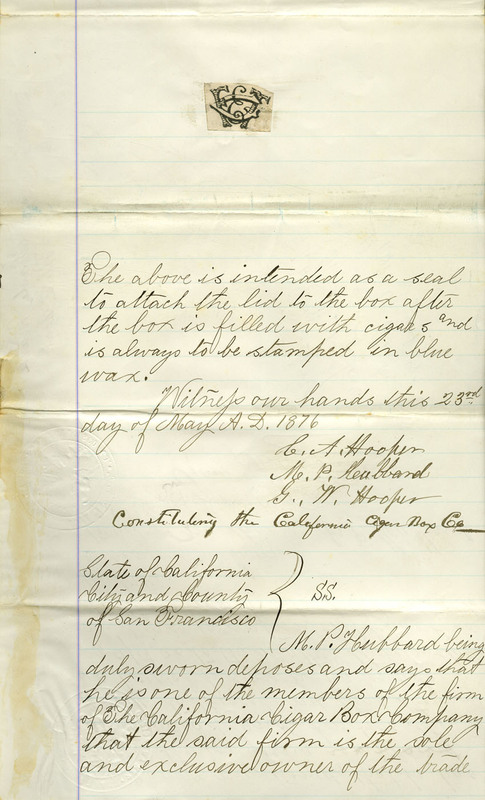 The above is intended as a seal
to attach the lid to the box after
the box is filled with cigars and
is always to be stamped in blue
wax.
Witness our hands this 23rd
day of May A.D. 1876
C. A. Hooper
M. P. Hubbard
G. W. Hooper
Constituting the California Cigar Box Co
State of California
City and County
of San Francisco
SS.
M. P. Hubbard being
duly sworn deposes and says that
he is one of the members of the firm
of The California Cigar Box Company
that the said firm is the sole
and exclusive owner of the trade